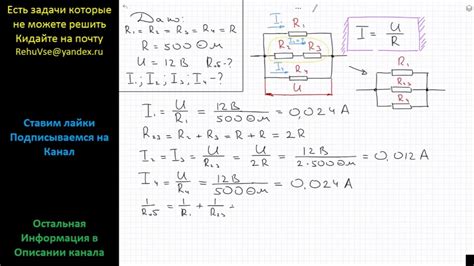 Есть задачи которые
не можете решить
Кидайте на почту
RehuVse@yandex.ru
Ставим лайки
Подписываемся на
Канал
Остальная
Информация в
Описании канала
Дано:
R₁ = R₂ = R₃ = R₄ = R
R = 500 Ом
U = 12В R₅-?
I₁; I₂; I₃; I₄-?
I₁
R₁
R₂ R₃
R₄
U
I = U/R
R₁
R₄
I₁ = U/R₁ = 12В/500 Ом = 0,024 А
R₂₃ = R₂ + R₃ = R + R = 2R
I₂ = I₃ = U/R₂₃ = U/2R = 12В/2·500 Ом = 0,012 А
I₄ = U/R₄ = 12В/500 Ом = 0,024 А
1/R = 1/R₁ + 1/R₂₃